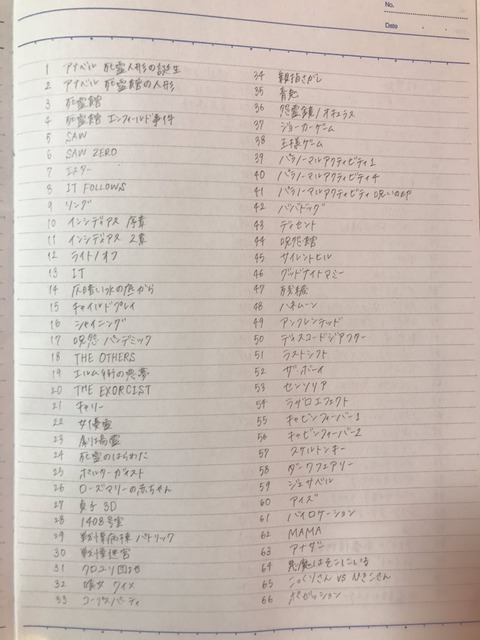 No.
Date
1 アナベル 死霊人形の誕生
2 アナベル 死霊館の人形
3 死霊館
4 死霊館 エンフィールド事件
5 SAW
6 SAW ZERO
7
8 IT FOLLOWS
9 リング
10 インシディアス 序章
11 インシディアス 2章
12 ライト/オフ
13 IT
14 仄暗い水の底から
15 チャイルドプレイ
16 シャイニング
17 呪怨 パンデミック
18 THE OTHERS
19 エルム街の悪夢
20 THE EXORCIST
21 キャリー
22 女優霊
23 劇場霊
24 死霊のはらわた
25 ポルターガイスト
26 ローズマリーの赤ちゃん
27 貞子 3D
28 1408号室
29 戦慄病棟 パトリック
30 戦慄迷宮
31 クロユリ団地
32 喰女 クイメ
33 コープスパーティ
34 親指さがし
35 青鬼
36 怨霊鏡/オキュラス
37 ジョーカーゲーム
38 王様ゲーム
39 パラノーマルアクティビティ1
40 パラノーマルアクティビティ4
41 パラノーマルアクティビティ 呪いの印
42 ババドック
43 ディセント
44 呪怨館
45 サイレントヒル
46 グッドナイトマミー
47 残穢
48 ハネムーン
49 アンフレンデッド
50 ディスコードジアフター
51 ラストシフト
52 ザ・ボーイ
53 センソリア
54 ラザロエフェクト
55 キャビンフィーバー1
56 キャビンフィーバー2
57 スケルトンキー
58 ダークフェアリー
59 ジェサベル
60 アイズ
61 バイロケーション
62 MAMA
63 アナザー
64 悪魔はそこにいる
65 こっくりさん VS
66 ポゼッション